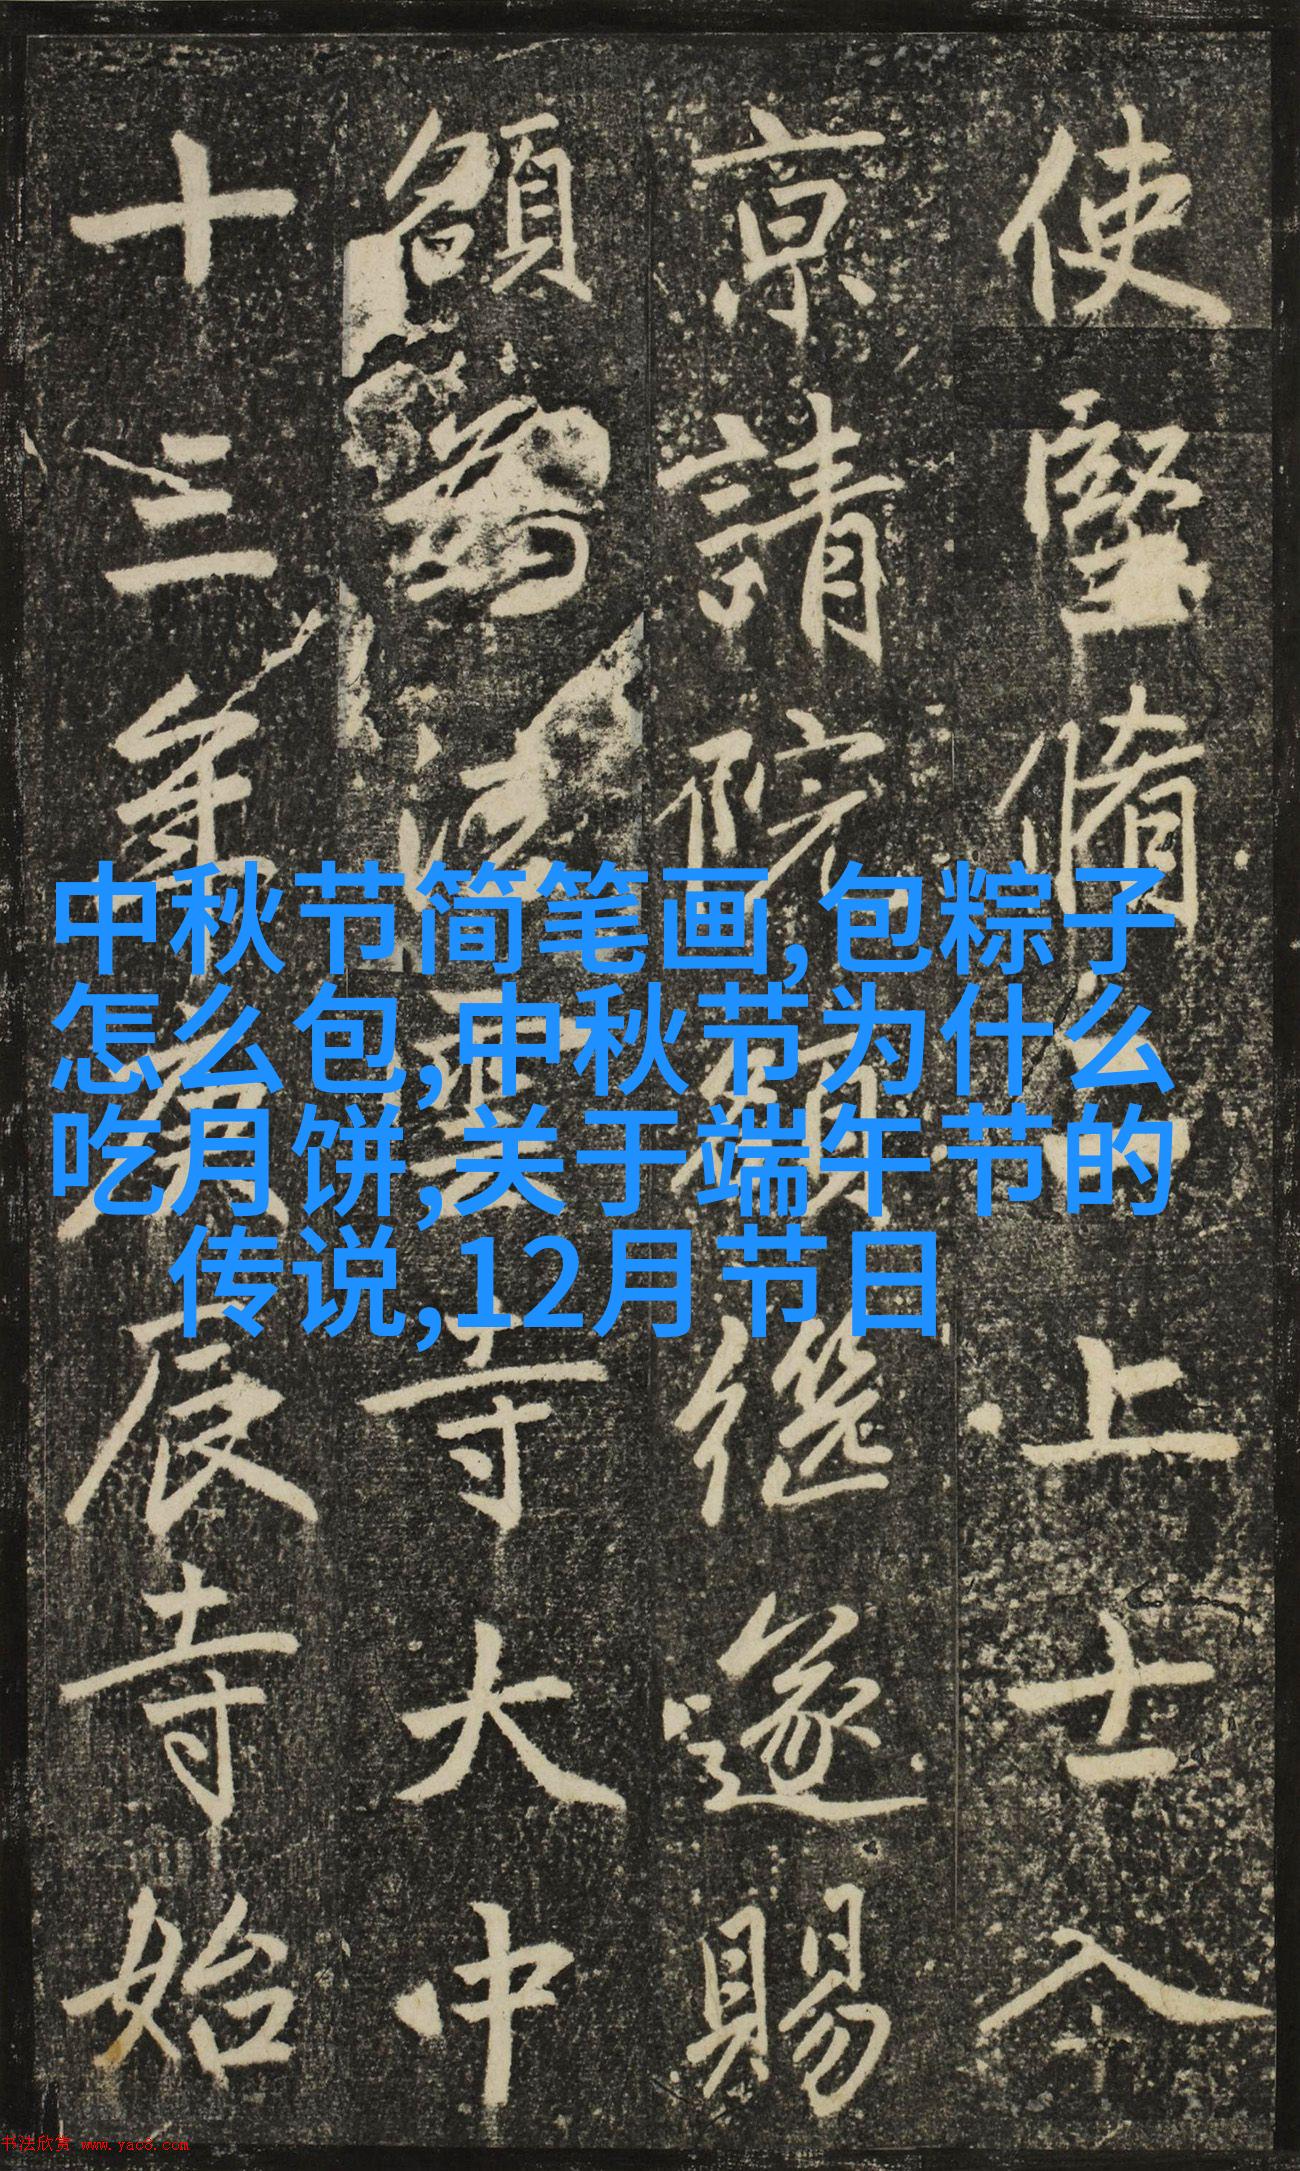 使堅脩上士入
京請院額繼遂賜
額為法雲寺大中
十三年庚辰寺始
中秋节简笔画,包粽子
怎么包,中秋节为什么
吃月饼,关于端午节的
传说,12月节日
书法欣赏 www.yac8.com